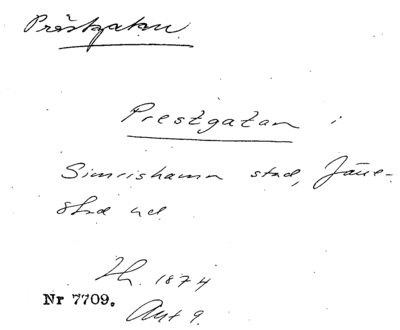 Prästgatan
Prestgatan i
Simrishamn stad, Järre-
stad hd
Th. 1874
Nr 7709.
Akt 9.